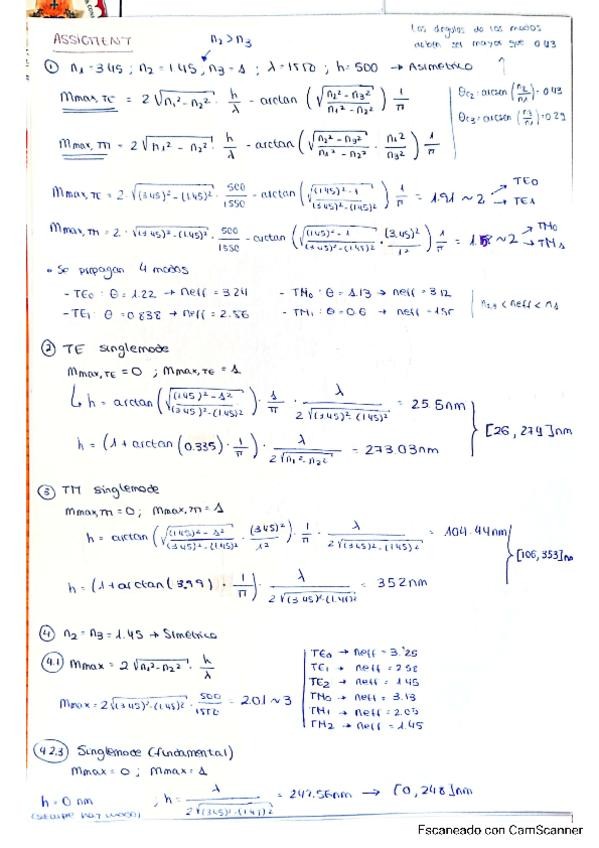 Los ángulos de los modos
deben ser mayores que 0.43
ASSIGMENT n₂ > n₃
① n₁ = 3.45 ; n₂ = 1.45 , n₃ = 1 ; λ = 1550 ; h = 500 → Asimétrico
Mmax,TE = 2√(n₁² - n₂²) · h/λ - arctan (√((n₂² - n₃²)/(n₁² - n₂²))) 1/π
θc₂ = arcsen (n₂/n₁) = 0.43
θc₃ = arcsen (n₃/n₁) = 0.29
Mmax,TM = 2√(n₁² - n₂²) · h/λ - arctan (√((n₂² - n₃²)/(n₁² - n₂²)) · n₁²/n₃²) 1/π
Mmax,TE = 2 · √((3.45)² - (1.45)²) · 500/1550 - arctan (√(((1.45)² - 1)/((3.45)² - (1.45)²))) 1/π = 1.91 ~ 2 → TE0 → TE1
Mmax,TM = 2 · √((3.45)² - (1.45)²) · 500/1550 - arctan (√(((1.45)² - 1)/((3.45)² - (1.45)²)) · (3.45)²/1²) 1/π = ~ 2 → TM0 → TM1
• Se propagan 4 modos
- TE0 : θ = 1.22 → neff = 3.24 - TM0 : θ = 1.13 → neff = 3.12
- TE1 : θ = 0.838 → neff = 2.56 - TM1 : θ = 0.6 → neff =
n₂,₃ < neff < n₁
② TE singlemode
Mmax,TE = 0 ; Mmax,TE = 1
h = arctan (√(((1.45)² - 1²)/((3.45)² - (1.45)²))) · 1/π · λ/(2√((3.45)² - (1.45)²)) = 25.5nm
h = (1 + arctan (0.335) · 1/π) · λ/(2√(n₁² - n₂²)) = 273.03nm
[26, 274]nm
③ TM singlemode
Mmax,TM = 0 ; Mmax,TM = 1
h = arctan (√(((1.45)² - 1²)/((3.45)² - (1.45)²)) · (3.45)²/1²) · 1/π · λ/(2√((3.45)² - (1.45)²)) = 104.44nm
h = (1 + arctan (3.99) · 1/π) · λ/(2√((3.45)² - (1.45)²)) = 352nm
[106, 353]nm
④ n₂ = n₃ = 1.45 → Simétrico
4.1 Mmax = 2√(n₁² - n₂²) · h/λ
Mmax = 2√((3.45)² - (1.45)²) · 500/1550 = 2.01 ~ 3
TE0 → neff = 3.25
TE1 → neff = 2.58
TE2 → neff = 1.45
TM0 → neff = 3.13
TM1 → neff = 2.05
TM2 → neff = 1.45
4.2.3 Singlemode (fundamental)
Mmax = 0 ; Mmax = 1
h = 0 nm ; h = λ/(2√((3.45)² - (1.45)²)) = 247.56nm → [0, 248]nm
(siempre hay modo)
Escaneado con CamScanner